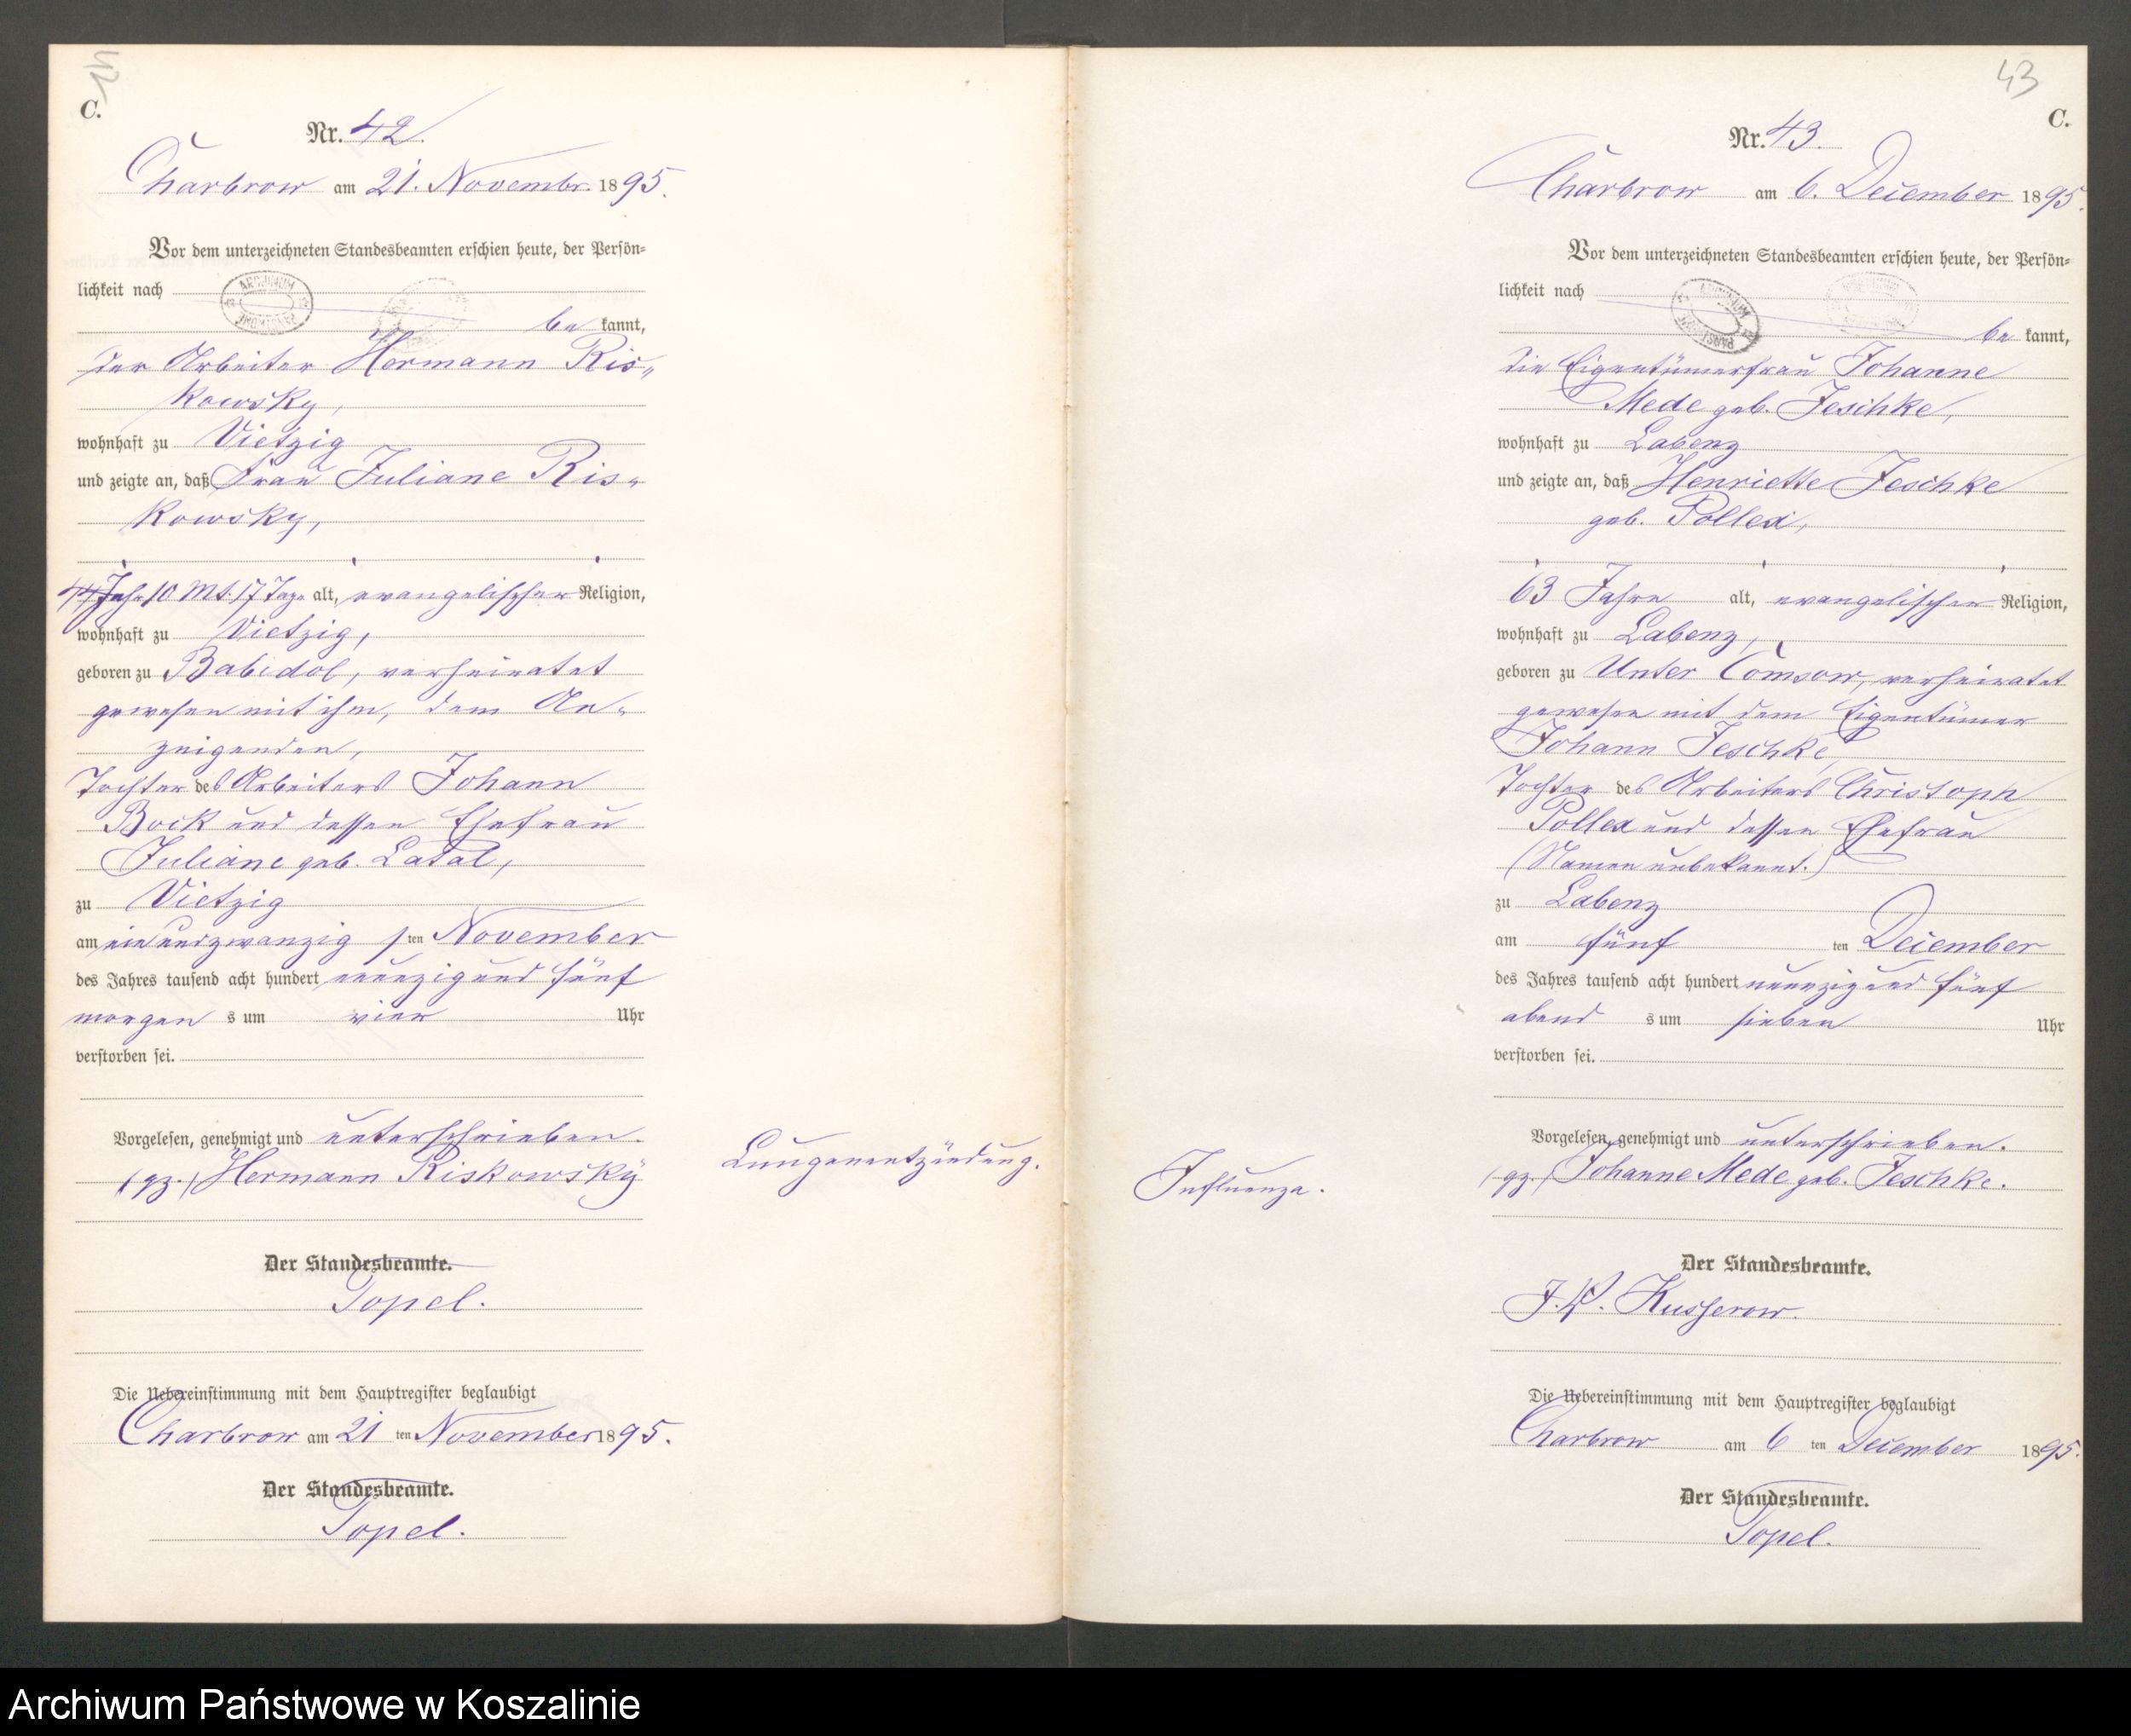 42
C.
Nr. 42.
Charbrow am 21. Novembr. 1895.
Vor dem unterzeichneten Standesbeamten erschien heute, der Persön=
lichkeit nach
be kannt,
der Arbeiter Hermann Ris„
kowsky,
wohnhaft zu Vietzig
und zeigte an, daß Frau Juliane Ris„
kowsky,
Jahr 10 Mt. 17 Tage alt, evangelischer Religion,
wohnhaft zu Vietzig,
geboren zu Babidol, verheiratet
gewesen mit ihm, dem An„
zeigenden,
Tochter des Arbeiters Johann
Bock und dessen Ehefrau
Juliane geb. Latal,
zu Vietzig
am einundzwanzig ten November
des Jahres tausend acht hundert neunzig und fünf
morgen s um vier Uhr
verstorben sei.
Vorgelesen, genehmigt und unterschrieben.
(gz.) Hermann Riskowsky
Lungenentzündung.
Der Standesbeamte.
Topel.
Die Uebereinstimmung mit dem Hauptregister beglaubigt
Charbrow am 21 ten November 1895.
Der Standesbeamte.
Topel.
43
C.
Nr. 43.
Charbrow am 6. December 1895.
Vor dem unterzeichneten Standesbeamten erschien heute, der Persön=
lichkeit nach
be kannt,
die Eigentümerfrau Johanne
Mede geb. Jeschke,
wohnhaft zu Labenz
und zeigte an, daß Henriette Jeschke
geb. Pollex,
63 Jahre alt, evangelischer Religion,
wohnhaft zu Labenz,
geboren zu Unter Comsow, verheiratet
gewesen mit dem Eigentümer
Johann Jeschke,
Tochter des Arbeiters Christoph
Pollex und dessen Ehefrau
(Namen unbekannt.)
zu Labenz
am fünf ten December
des Jahres tausend acht hundert neunzig und fünf
abend s um sieben Uhr
verstorben sei.
Vorgelesen, genehmigt und unterschrieben.
(gz.) Johanne Mede geb. Jeschke.
Influenza.
Der Standesbeamte.
J. V. Kusserow.
Die Uebereinstimmung mit dem Hauptregister beglaubigt
Charbrow am 6 ten December 1895.
Der Standesbeamte.
Topel.
Archiwum Państwowe w Koszalinie